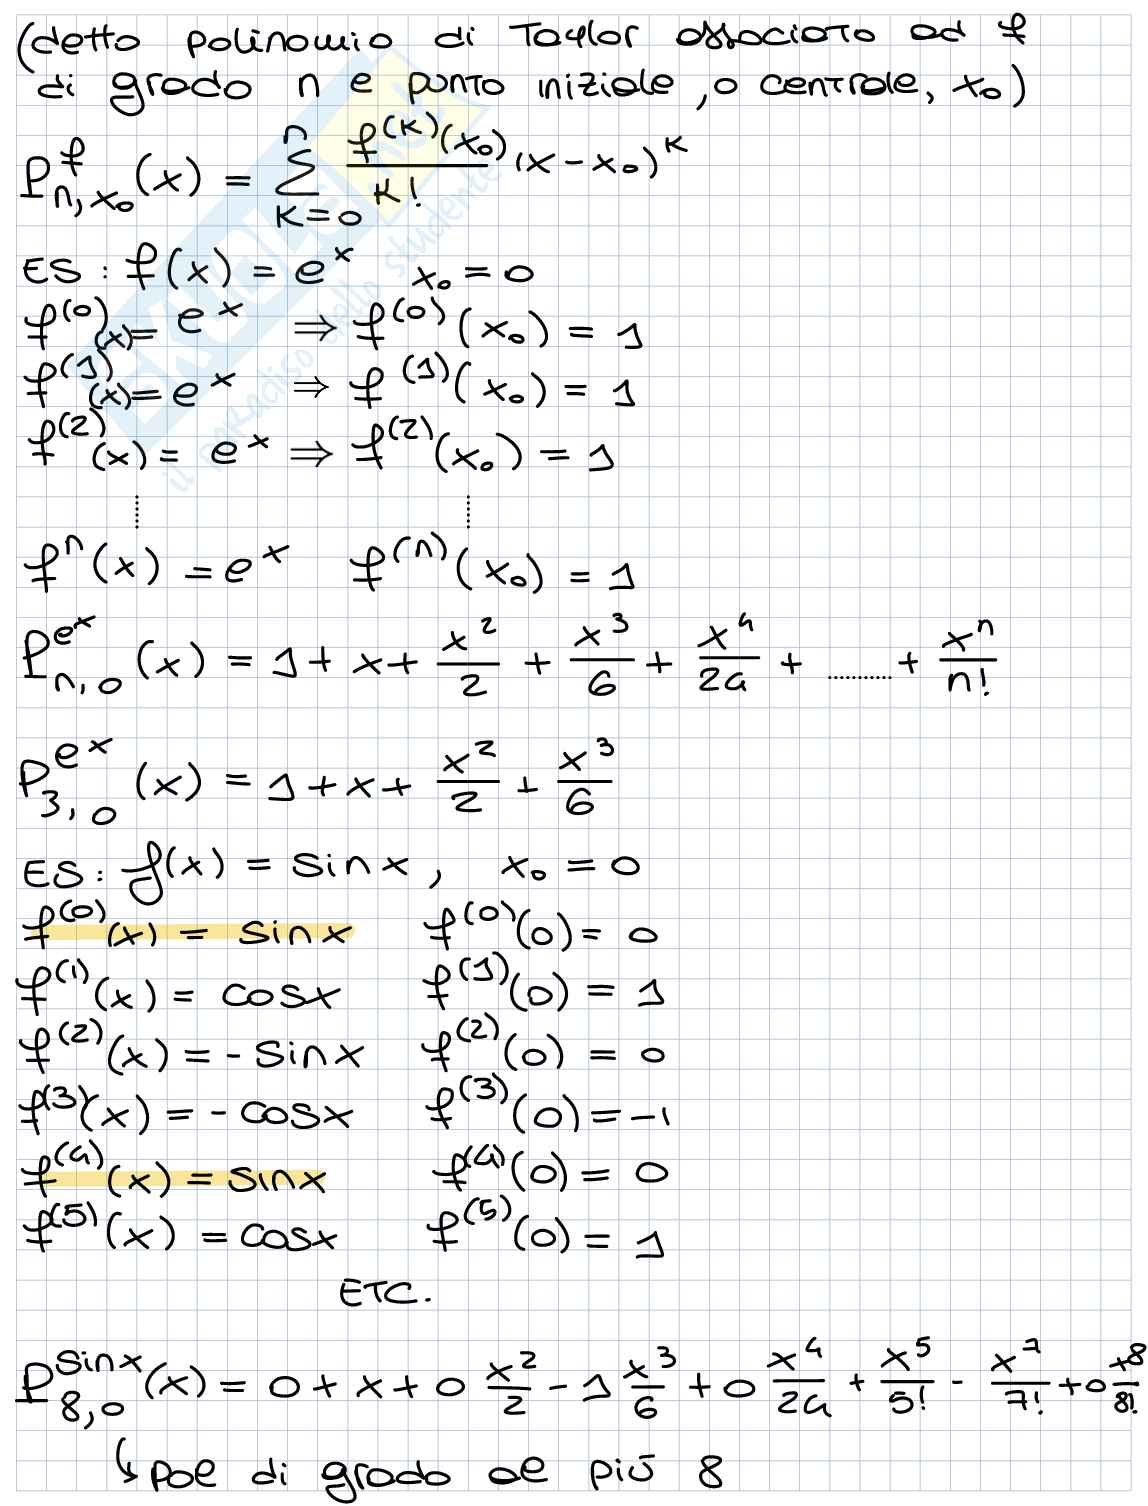 (detto polinomio di Taylor associato ad f
di grado n e punto iniziale, o centrale, x₀)
P^f_{n,x₀}(x) = Σ_{k=0}^{n} f^{(k)}(x₀)/k! (x-x₀)^k
ES: f(x) = e^x x₀ = 0
f^{(0)}(x) = e^x ⇒ f^{(0)}(x₀) = 1
f^{(1)}(x) = e^x ⇒ f^{(1)}(x₀) = 1
f^{(2)}(x) = e^x ⇒ f^{(2)}(x₀) = 1
⋮ ⋮
f^n(x) = e^x f^{(n)}(x₀) = 1
P^{e^x}_{n,0}(x) = 1 + x + x²/2 + x³/6 + x⁴/24 + ........... + x^n/n!
P^{e^x}_{3,0}(x) = 1 + x + x²/2 + x³/6
ES: f(x) = sinx, x₀ = 0
f^{(0)}(x) = sinx f^{(0)}(0) = 0
f^{(1)}(x) = cosx f^{(1)}(0) = 1
f^{(2)}(x) = - sinx f^{(2)}(0) = 0
f^{(3)}(x) = - cosx f^{(3)}(0) = -1
f^{(4)}(x) = sinx f^{(4)}(0) = 0
f^{(5)}(x) = cosx f^{(5)}(0) = 1
ETC.
P^{sinx}_{8,0}(x) = 0 + x + 0 x²/2 - 1 x³/6 + 0 x⁴/24 + x⁵/5! - x⁷/7! + 0 x⁸/8!
↳ pol di grado al più 8
SKUOLA.net
il paradiso dello studente